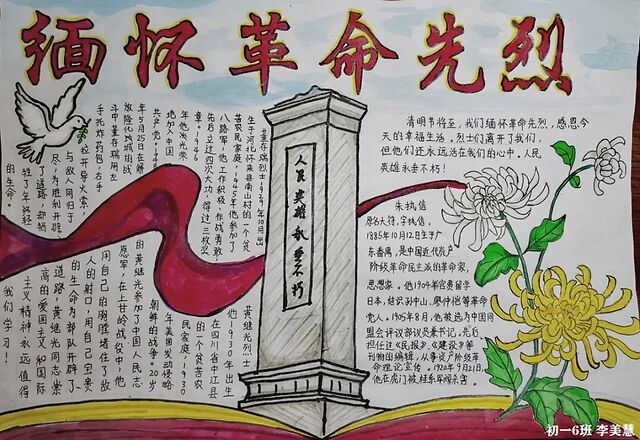 缅怀革命先烈
董存瑞烈士1929年10月出
生于河北怀来县南山村的一个贫
苦农民家庭,1945年他参加了
八路军,他工作积极、作战勇敢,
先后立过四次大功,得过三枚奖
章。1946
年他光荣
地加入中国
共产党。1948
年5月25日在解
放隆化战的战
斗中董存瑞用左
手托炸药包,右手
拉开导火索,
与敌人同归于
尽,为胜利开辟
了道路,却牺
牲了年轻
的生命。
人民英雄永垂不朽
黄继光烈士
他1930年出生
在四川省中江县
的一个贫农
民家庭,1930
年美国发动侵略
朝鲜的战争,20岁
的黄继光参加了中国人民志
愿军,在上甘岭战役中,他
用自己的胸膛堵住了敌
人的射口,用自己宝贵
的生命为部队开辟了
道路,黄继光同志崇
高的爱国主义和国际
主义精神永远值得
我们学习!
清明节将至,我们缅怀革命先烈,感恩今
天的幸福生活,烈士们离开了我们,
但他们还永远活在我们的心中,人民
英雄永垂不朽!
朱执信
原名大符,字执信,
1885年10月12日生于广
东番禺,是中国近代资产
阶级革命民主派的革命家,
思想家。他1904年官费留学
日本,结识孙中山、廖仲恺等革命
党人。1905年8月,他被选为中国同
盟会评议部议员兼书记。先后
担任过《民报》、《建设》等
刊物的编辑,从事资产阶级革
命理论宣传。1920年9月21日,
他在虎门被桂系军阀杀害。
初一6班 李美慧